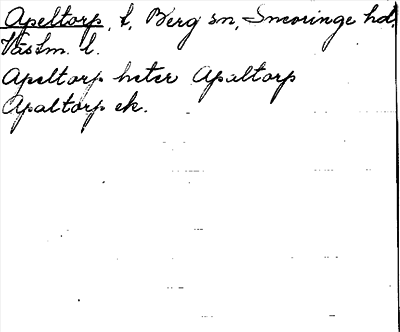 Apeltorp, t, Berg sn, Snevringe hd,
Västm. l.
Apeltorp heter Apaltorp
Apaltorp ek.